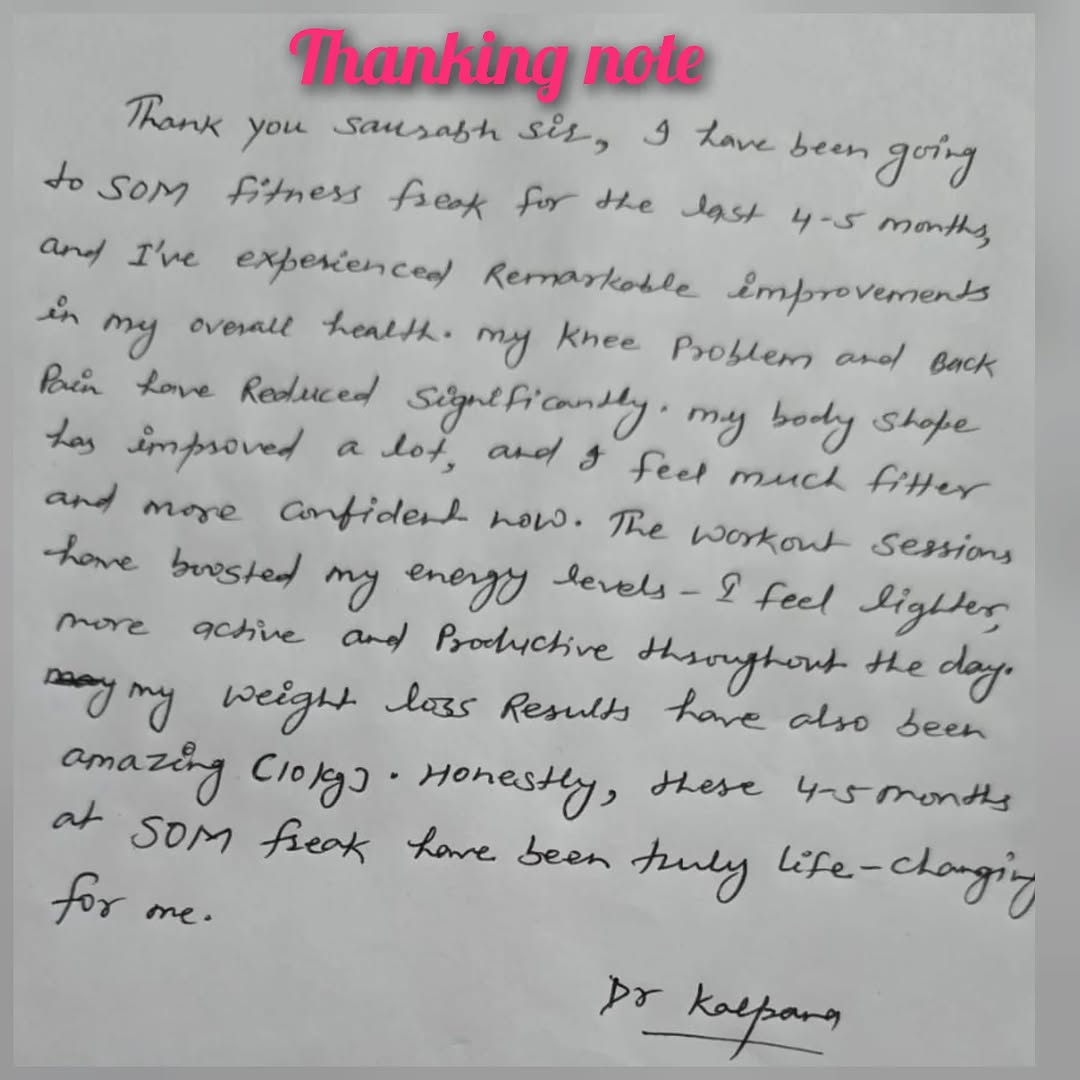 Thanking note
Thank you Saurabh sir, I have been going
to SOM fitness freak for the last 4-5 months,
and I've experienced Remarkable improvements
in my overall health. my knee Problem and Back
Pain have Reduced significantly. my body shape
has improved a lot, and I feel much fitter
and more confident now. The workout sessions
have boosted my energy levels - I feel lighter,
more active and Productive throughout the day.
my weight loss Results have also been
amazing (10kg). Honestly, these 4-5 months
at SOM freak have been truly life-changing
for me.
Dr Kalpana